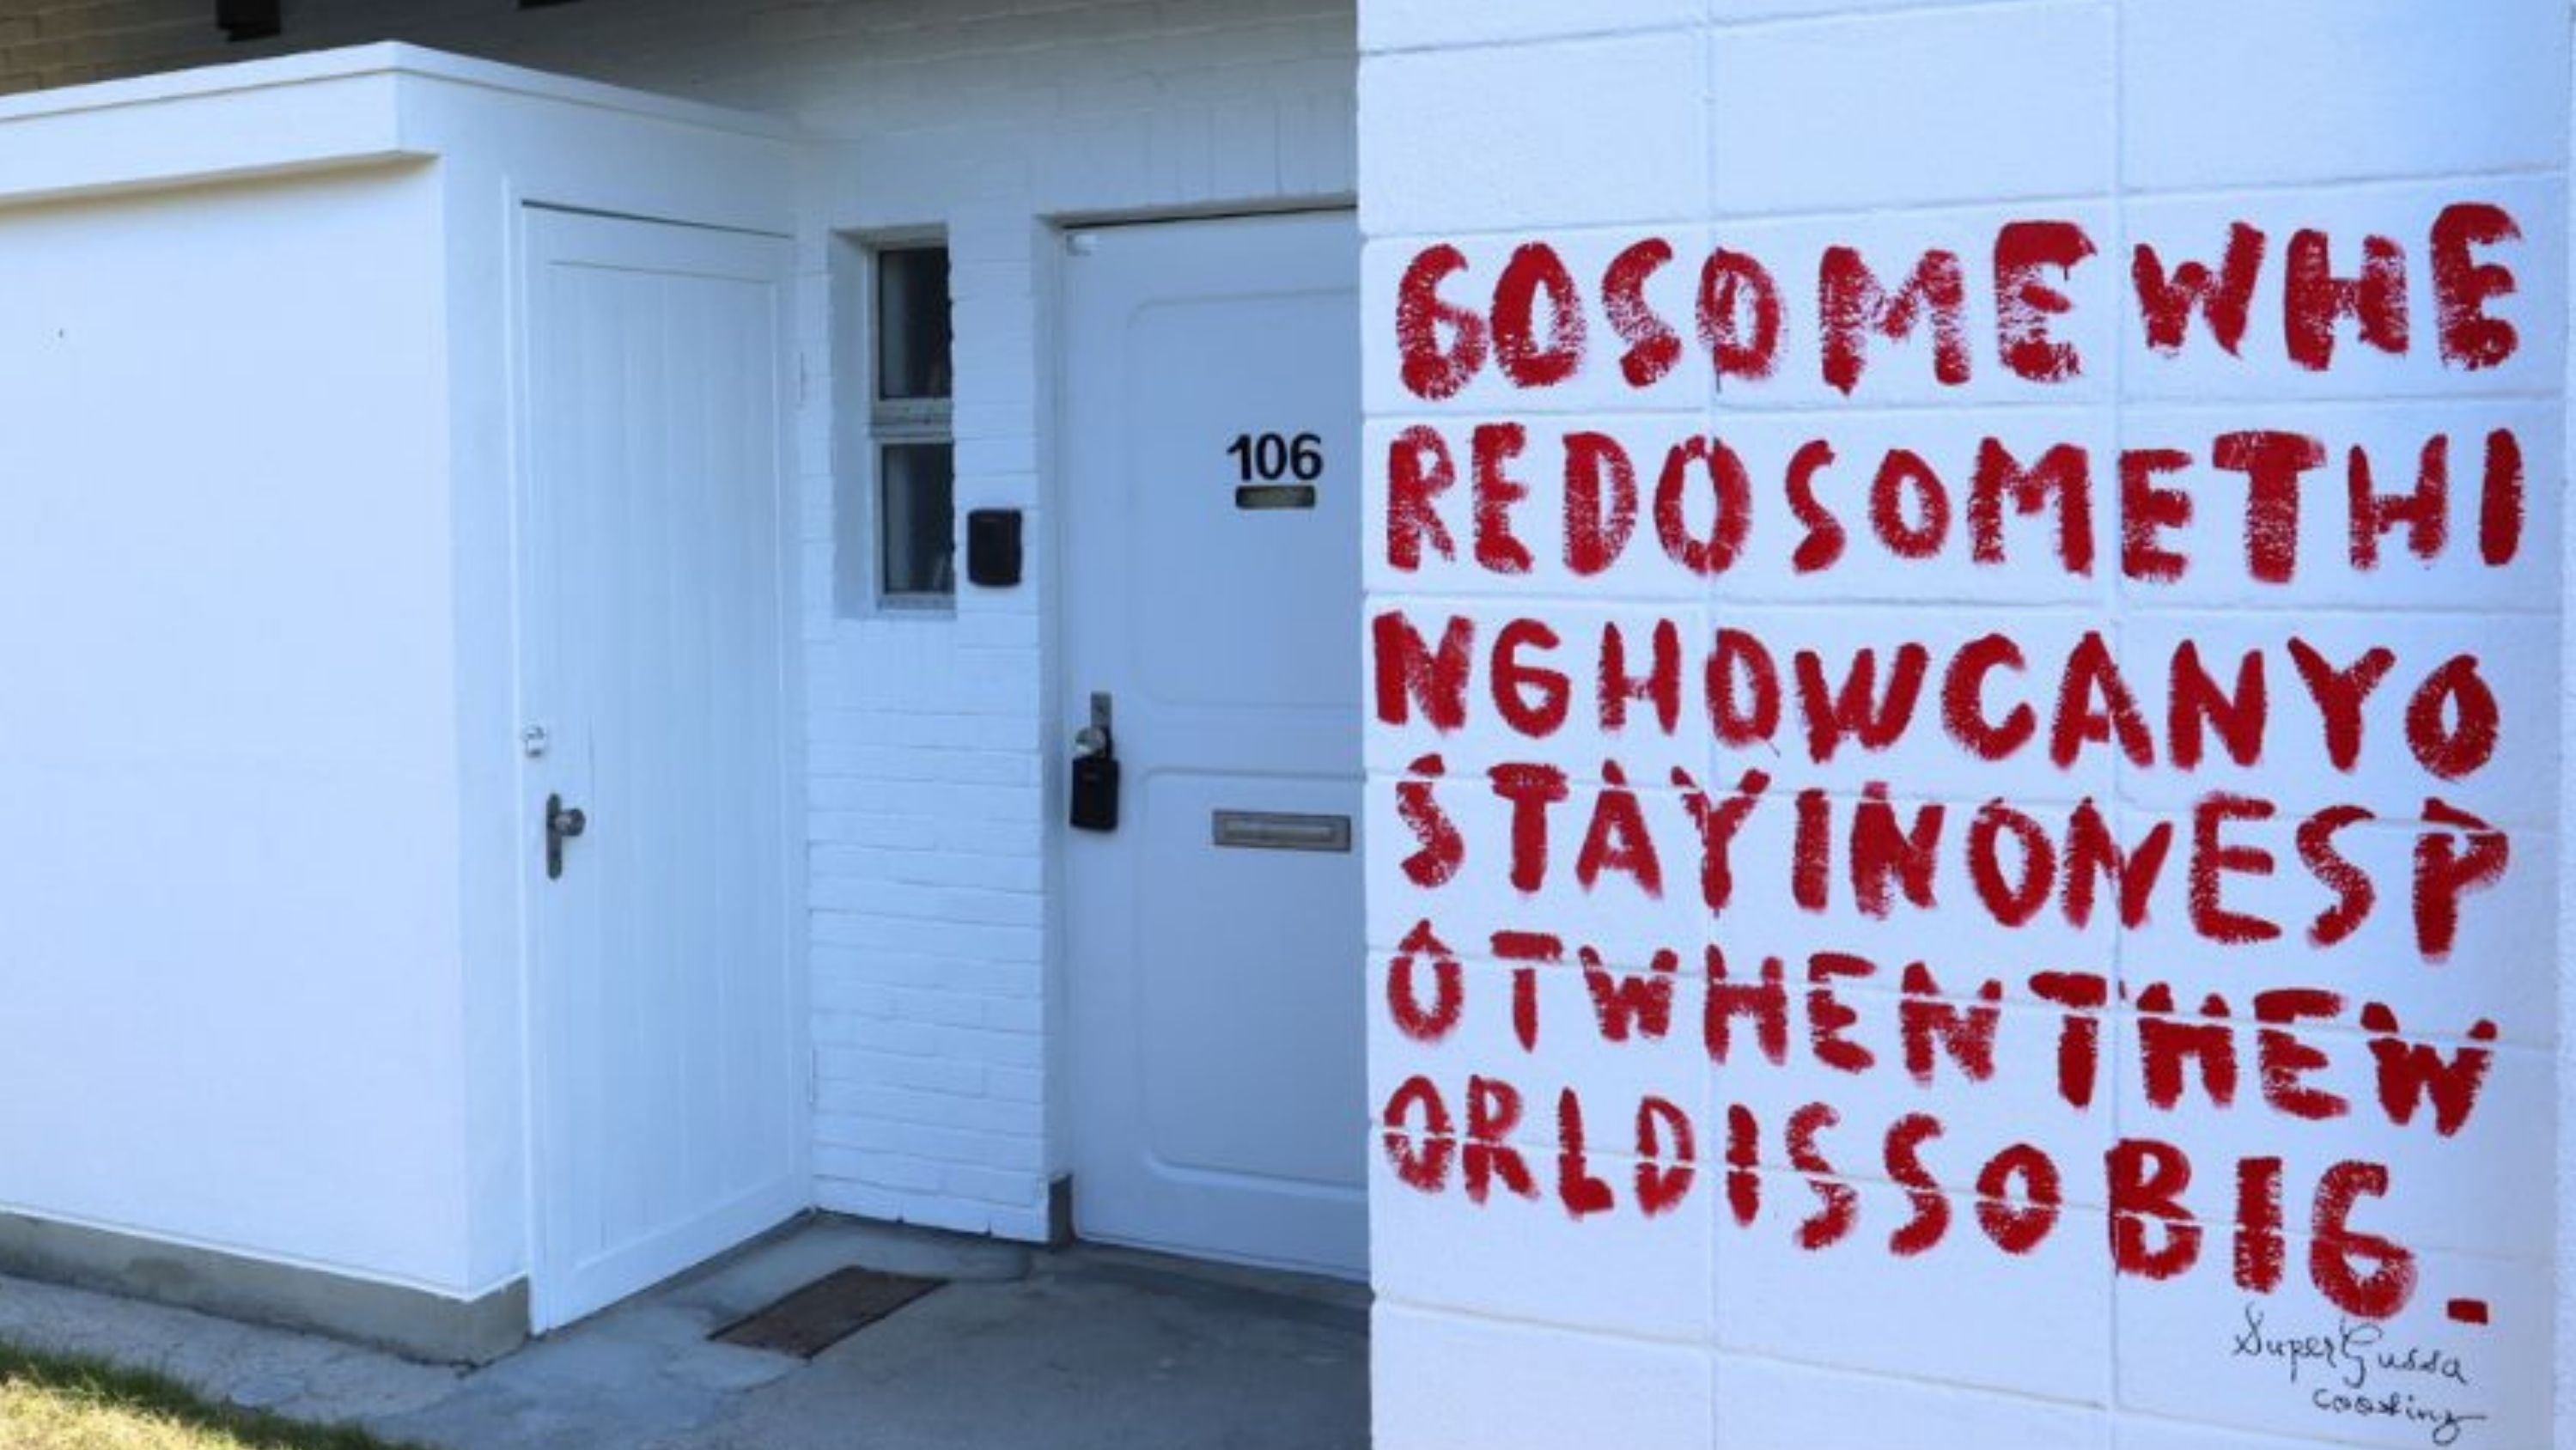 106
GOSOMEWHE
REDOSOMETHI
NGHOWCANYO
STAYINONESP
OTWHENTHEW
ORLDISSOBIG_
SuperGussa